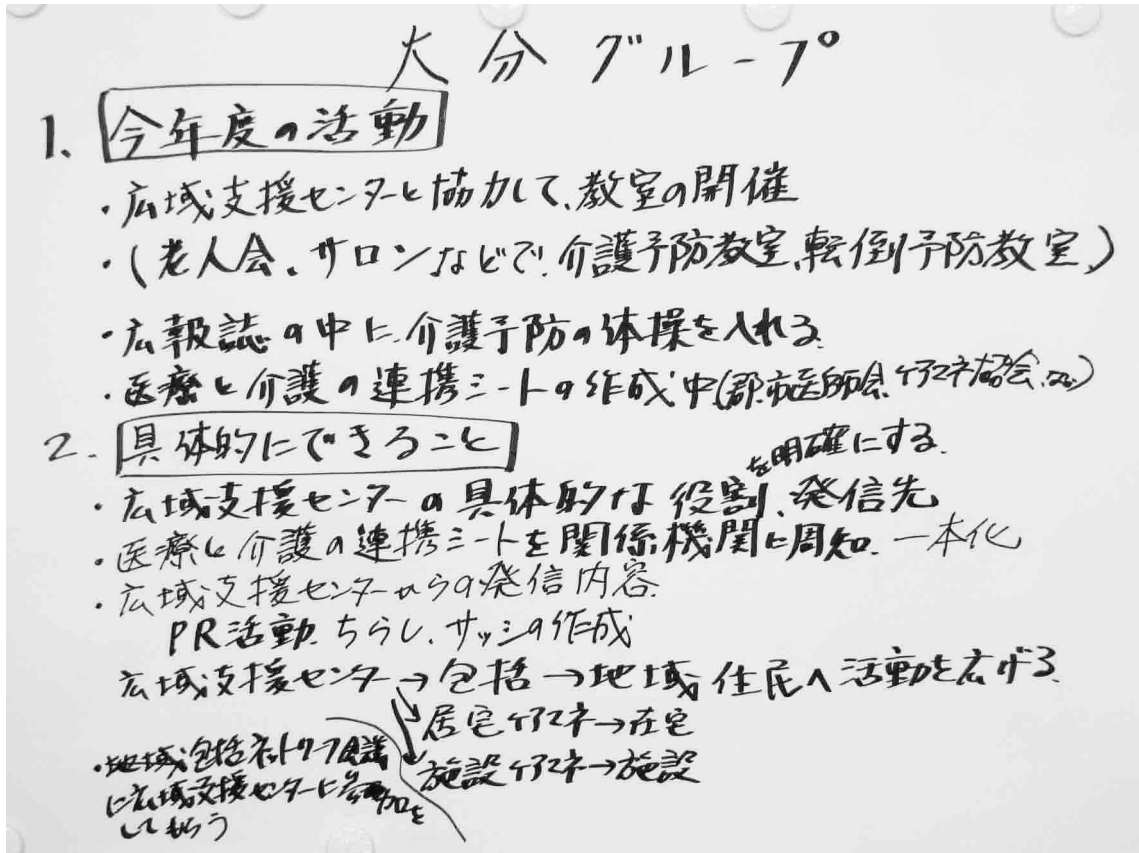 大分グループ
1. 今年度の活動
・広域支援センターと協力して、教室の開催
・(老人会、サロンなどで、介護予防教室、転倒予防教室、)
・広報誌の中に、介護予防の体操を入れる。
・医療と介護の連携シートの作成中(郡市医師会、ケアマネ協会、など)
2. 具体的にできること
を明確にする。
・広域支援センターの具体的な役割、発信先
・医療と介護の連携シートを関係機関に周知、一本化
・広域支援センターからの発信内容
PR活動、ちらし、サッシの作成
広域支援センター→包括→地域住民へ活動を広げる。
居宅ケアマネ→在宅
施設ケアマネ→施設
・地域包括ネットワーク会議
に広域支援センターに参加を
してもらう